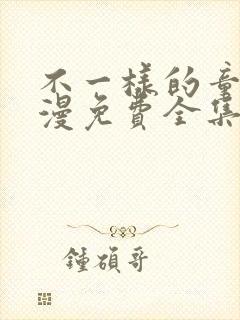 不一樣的童
漫免費全集
鍾碩哥